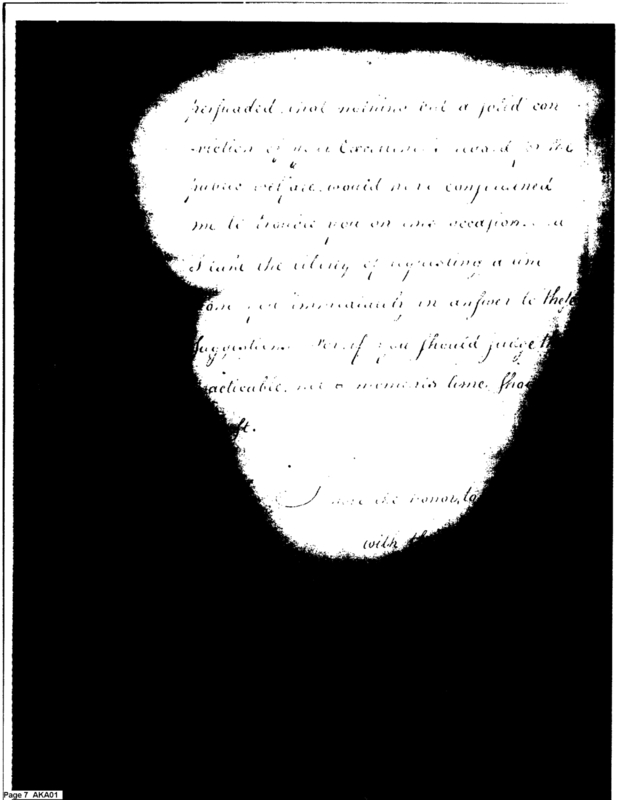 persuaded, that nothing but a solid con
-viction of your Excellency's regard for the
public welfare, would have constrained
me to trouble you on this occasion.
I take the liberty of requesting a line
from you immediately in answer to these
suggestions. For, if you should judge th
racticable, not a moment's time, shou
ft.
I have the honor, to
with th
Page 7 AKA01